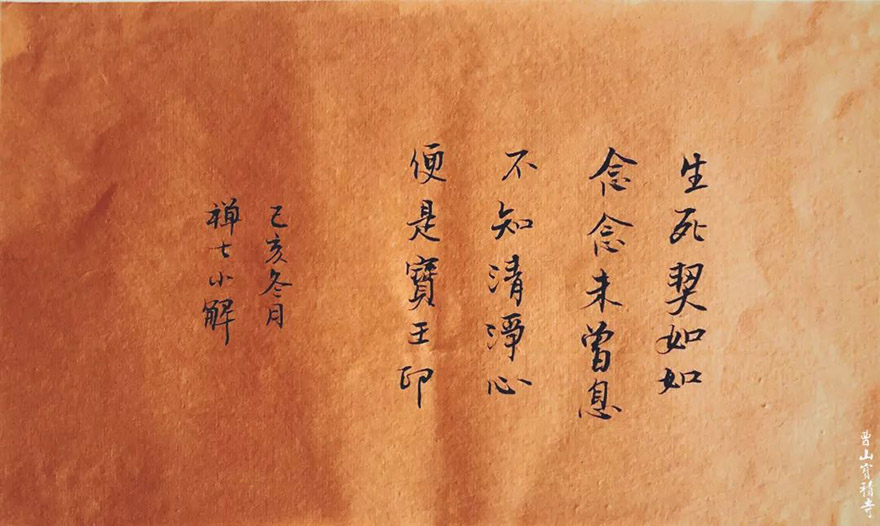 生死契如如
念念未曾息
不知清淨心
便是寶王印
己亥冬月
禅七小解
曹山寶積寺